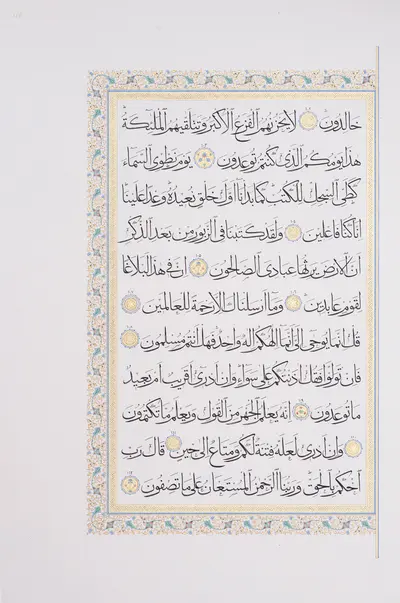 خالدون لا يحزنهم الفزع الاكبر وتتلقيهم المليكة
هذا يومكم الذي كنتم توعدون يوم نطوي السماء
كطي السجل للكتب كما بدانا اول خلق نعيده وعدا علينا
انا كنا فاعلين ولقد كتبنا في الزبور من بعد الذكر
ان الارض يرثها عبادي الصالحون ان في هذا لبلاغا
لقوم عابدين وما ارسلناك الا رحمة للعالمين
قل انما يوحى الي انما الهكم اله واحد فهل انتم مسلمون
فان تولوا فقل آذنتكم على سواء وان ادري اقريب ام بعيد
ما توعدون انه يعلم الجهر من القول ويعلم ما تكتمون
وان ادري لعله فتنة لكم ومتاع الى حين قال رب
احكم بالحق وربنا الرحمن المستعان على ما تصفون